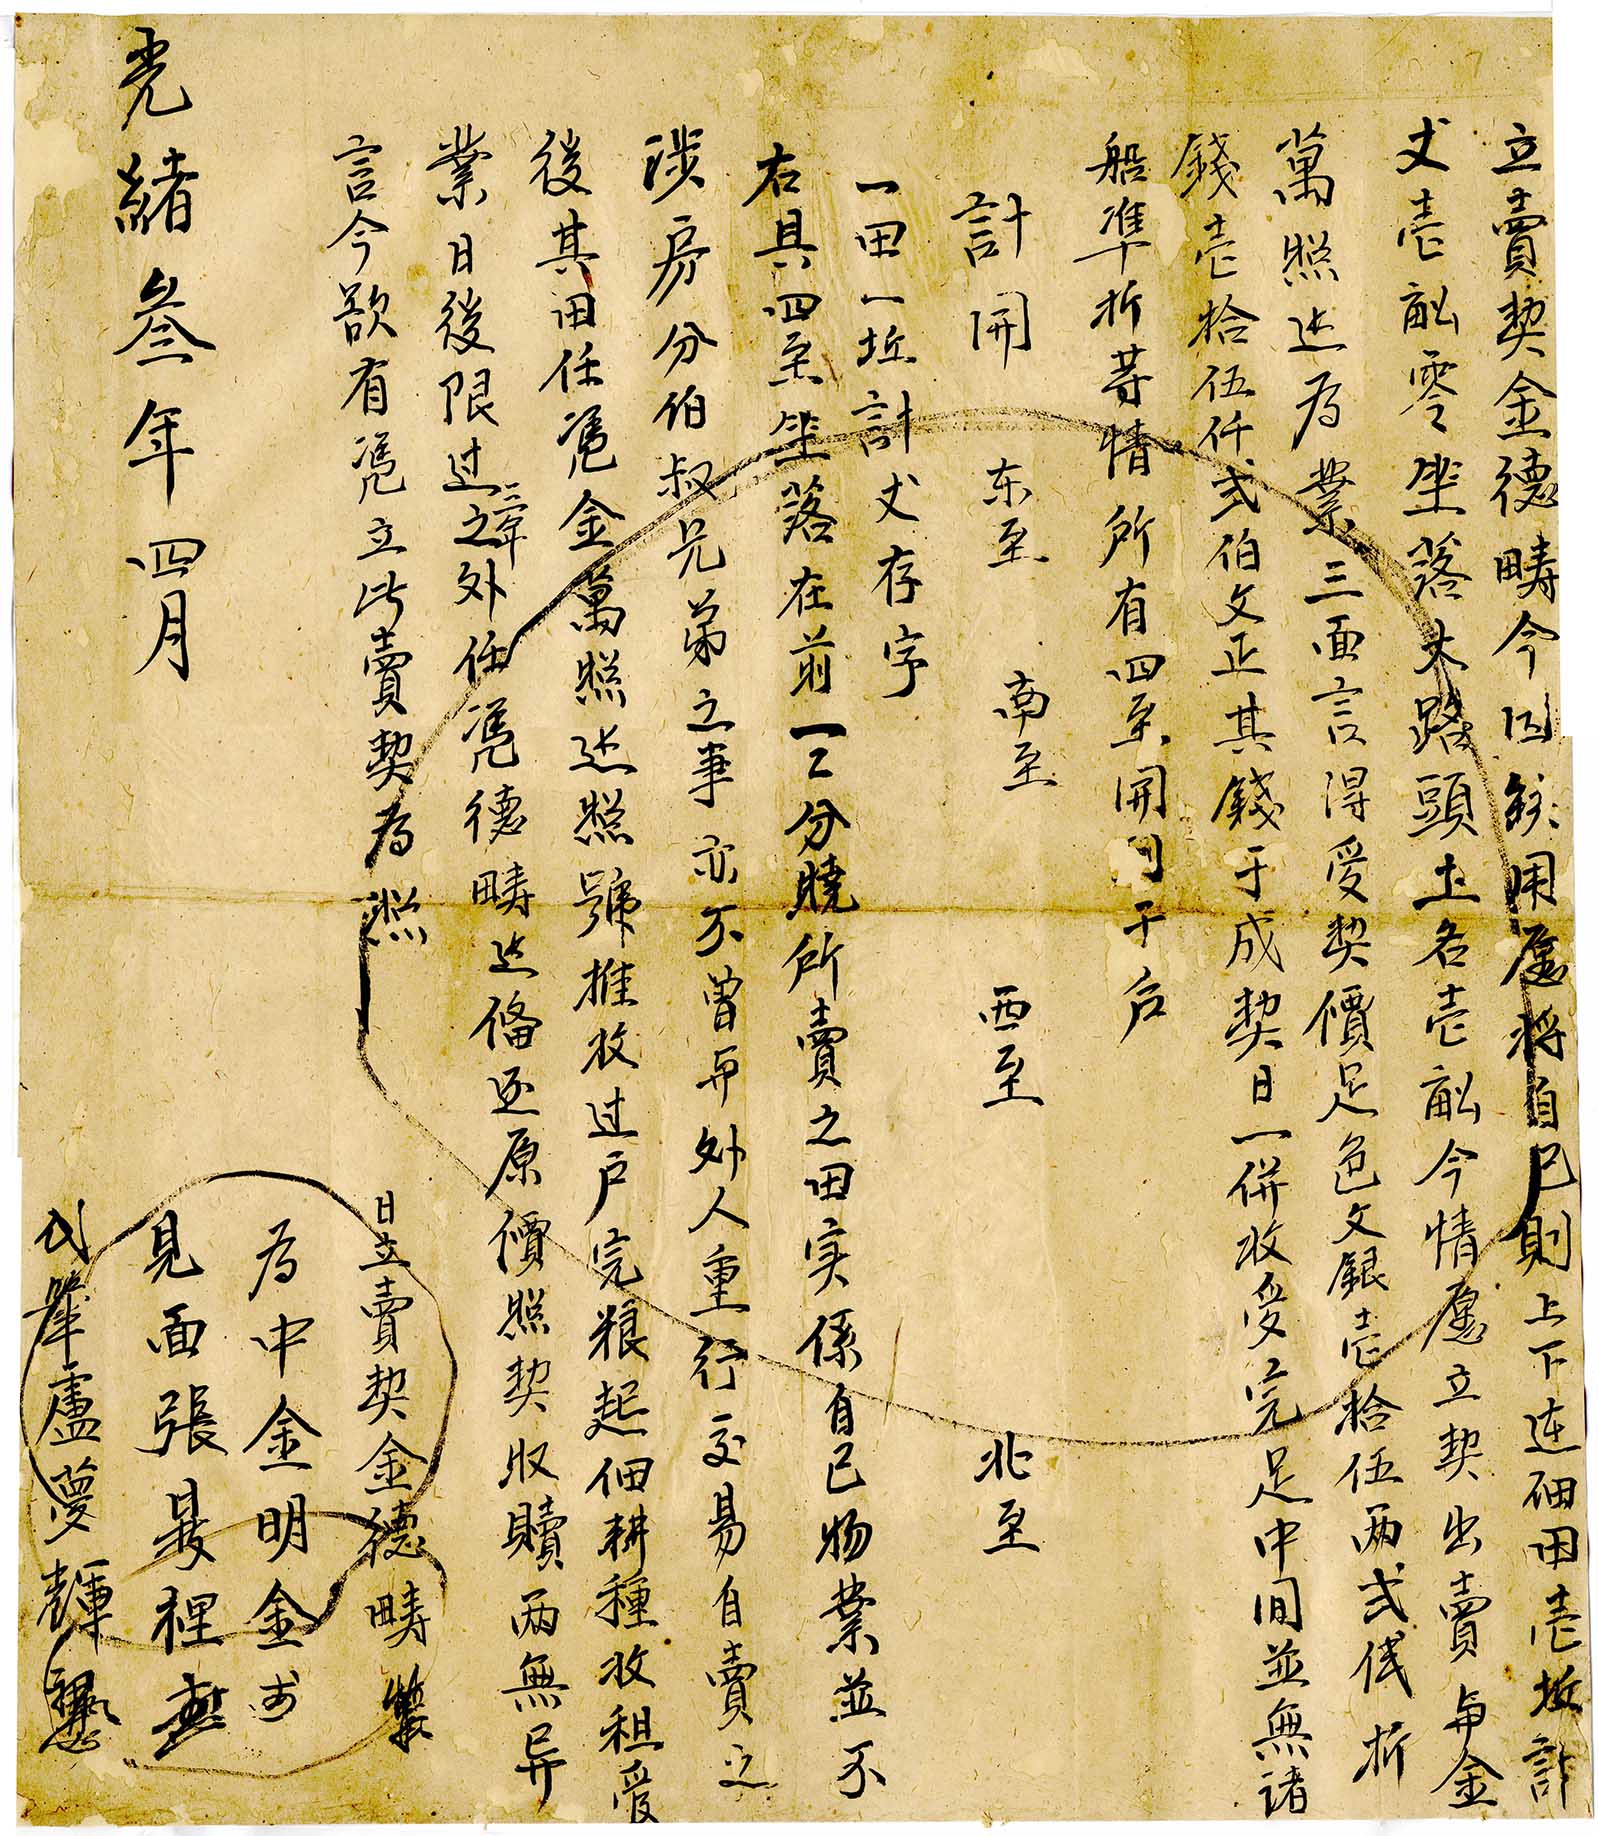 立賣契金德疇今因缺用愿將自己則上下連佃田壱坵計
丈壱畝零坐落大路頭土名壱畝今情愿立契出賣與金
萬照边為業三面言得受契價足色文銀壱拾伍两弍伐折
錢壱拾伍仟弍伯文正其錢于成契日一併收受完足中间並無諸
船準折苛情所有四至開于后
計開 东至 南至 西至 北至
一田一坵計丈存字
右具四至坐落在前一二分曉所賣之田実係自已物業並不
涉房分伯叔兄弟之事亦不曾與外人重行交易自賣之
後其田任凴金萬照边照號推收过户完粮起佃耕種收租受
業日後限过三年之外任凴德疇边偹还原價照契收贖两無异
言今欲有凴立此賣契為照
光緒叁年四月
日立賣契金德疇
為中金明金
見面張晏裡
代筆盧夢輝